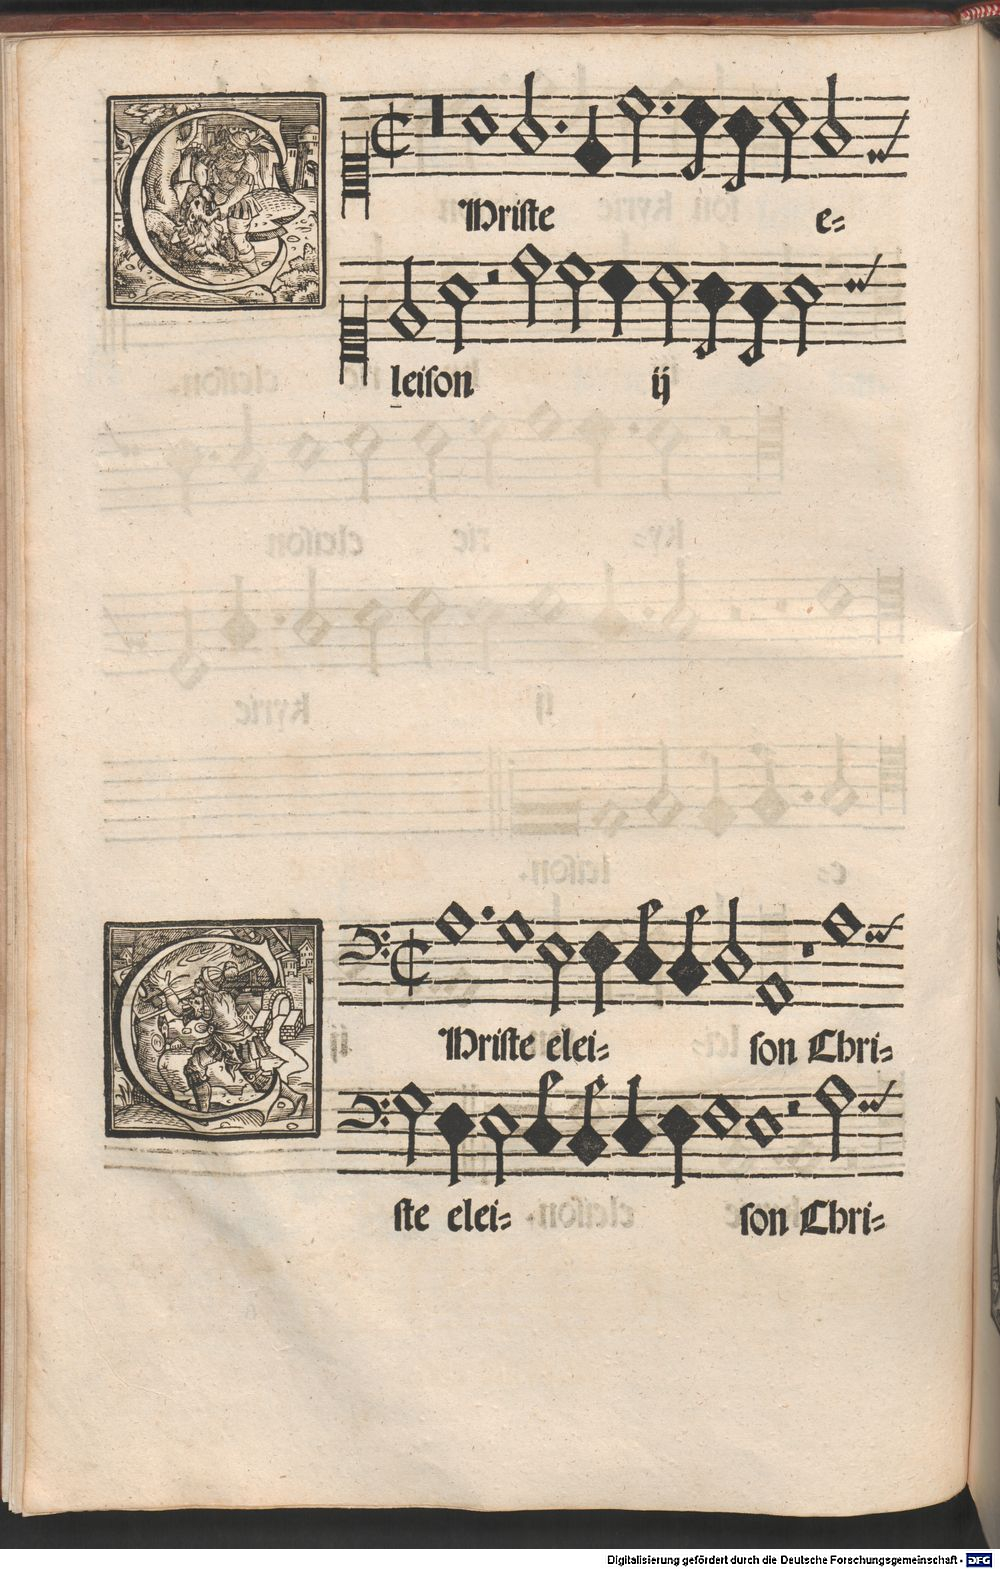 CHriste e=
leison ij
CHriste elei= son Chri=
ste elei= son Chri=
Digitalisierung gefördert durch die Deutsche Forschungsgemeinschaft - DFG